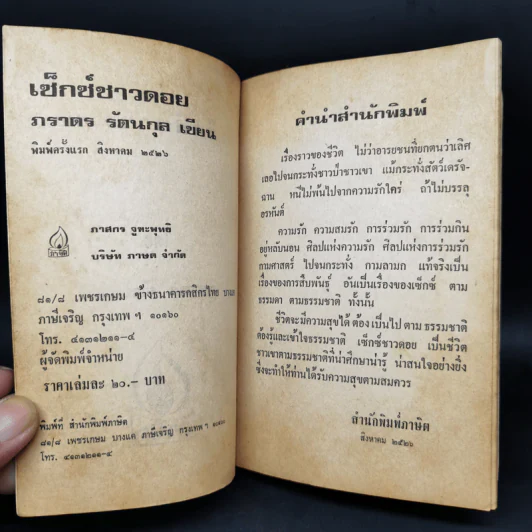 เซ็กซ์ชาวดอย
ภราดร รัตนกุล เขียน
พิมพ์ครั้งแรก สิงหาคม ๒๕๒๖
ภาสกร จูฑะพุทธิ
บริษัท ภาษิต จำกัด
๘๑/๘ เพชรเกษม ข้างธนาคารกสิกรไทย บางแค
ภาษีเจริญ กรุงเทพ ฯ ๑๐๑๖๐
โทร. ๔๑๓๑๒๑๑-๔
ผู้จัดพิมพ์จำหน่าย
ราคาเล่มละ ๒๐.- บาท
พิมพ์ที่ สำนักพิมพ์ภาษิต
๘๑/๘ เพชรเกษม บางแค ภาษีเจริญ กรุงเทพ ฯ ๑๐๑๖๐
โทร. ๔๑๓๑๒๑๑-๔
คำนำสำนักพิมพ์
เรื่องราวของชีวิต ไม่ว่าอารยชนที่ยกตนว่าเลิศ
เลอไปจนกระทั่งชาวป่าชาวเขา แม้กระทั่งสัตว์เดรัจ-
ฉาน หนีไม่พ้นไปจากความรักใคร่ ถ้าไม่บรรลุ
อรหันต์
ความรัก ความสมรัก การร่วมรัก การร่วมกิน
อยู่หลับนอน ศิลปแห่งความรัก ศิลปแห่งการร่วมรัก
กามศาสตร์ ไปจนกระทั่ง กามลามก แท้จริงเป็น
เรื่องของการสืบพันธุ์ อันเป็นเรื่องของเซ็กซ์ ตาม
ธรรมดา ตามธรรมชาติ ทั้งนั้น
ชีวิตจะมีความสุขได้ ต้องเป็นไป ตาม ธรรมชาติ
ต้องรู้และเข้าใจธรรมชาติ เซ็กซ์ชาวดอย เป็นชีวิต
ชาวเขาตามธรรมชาติที่น่าศึกษาน่ารู้ น่าสนใจอย่างยิ่ง
ซึ่งจะทำให้ท่านได้รับความสุขตามสมควร
สำนักพิมพ์ภาษิต
สิงหาคม ๒๕๒๖